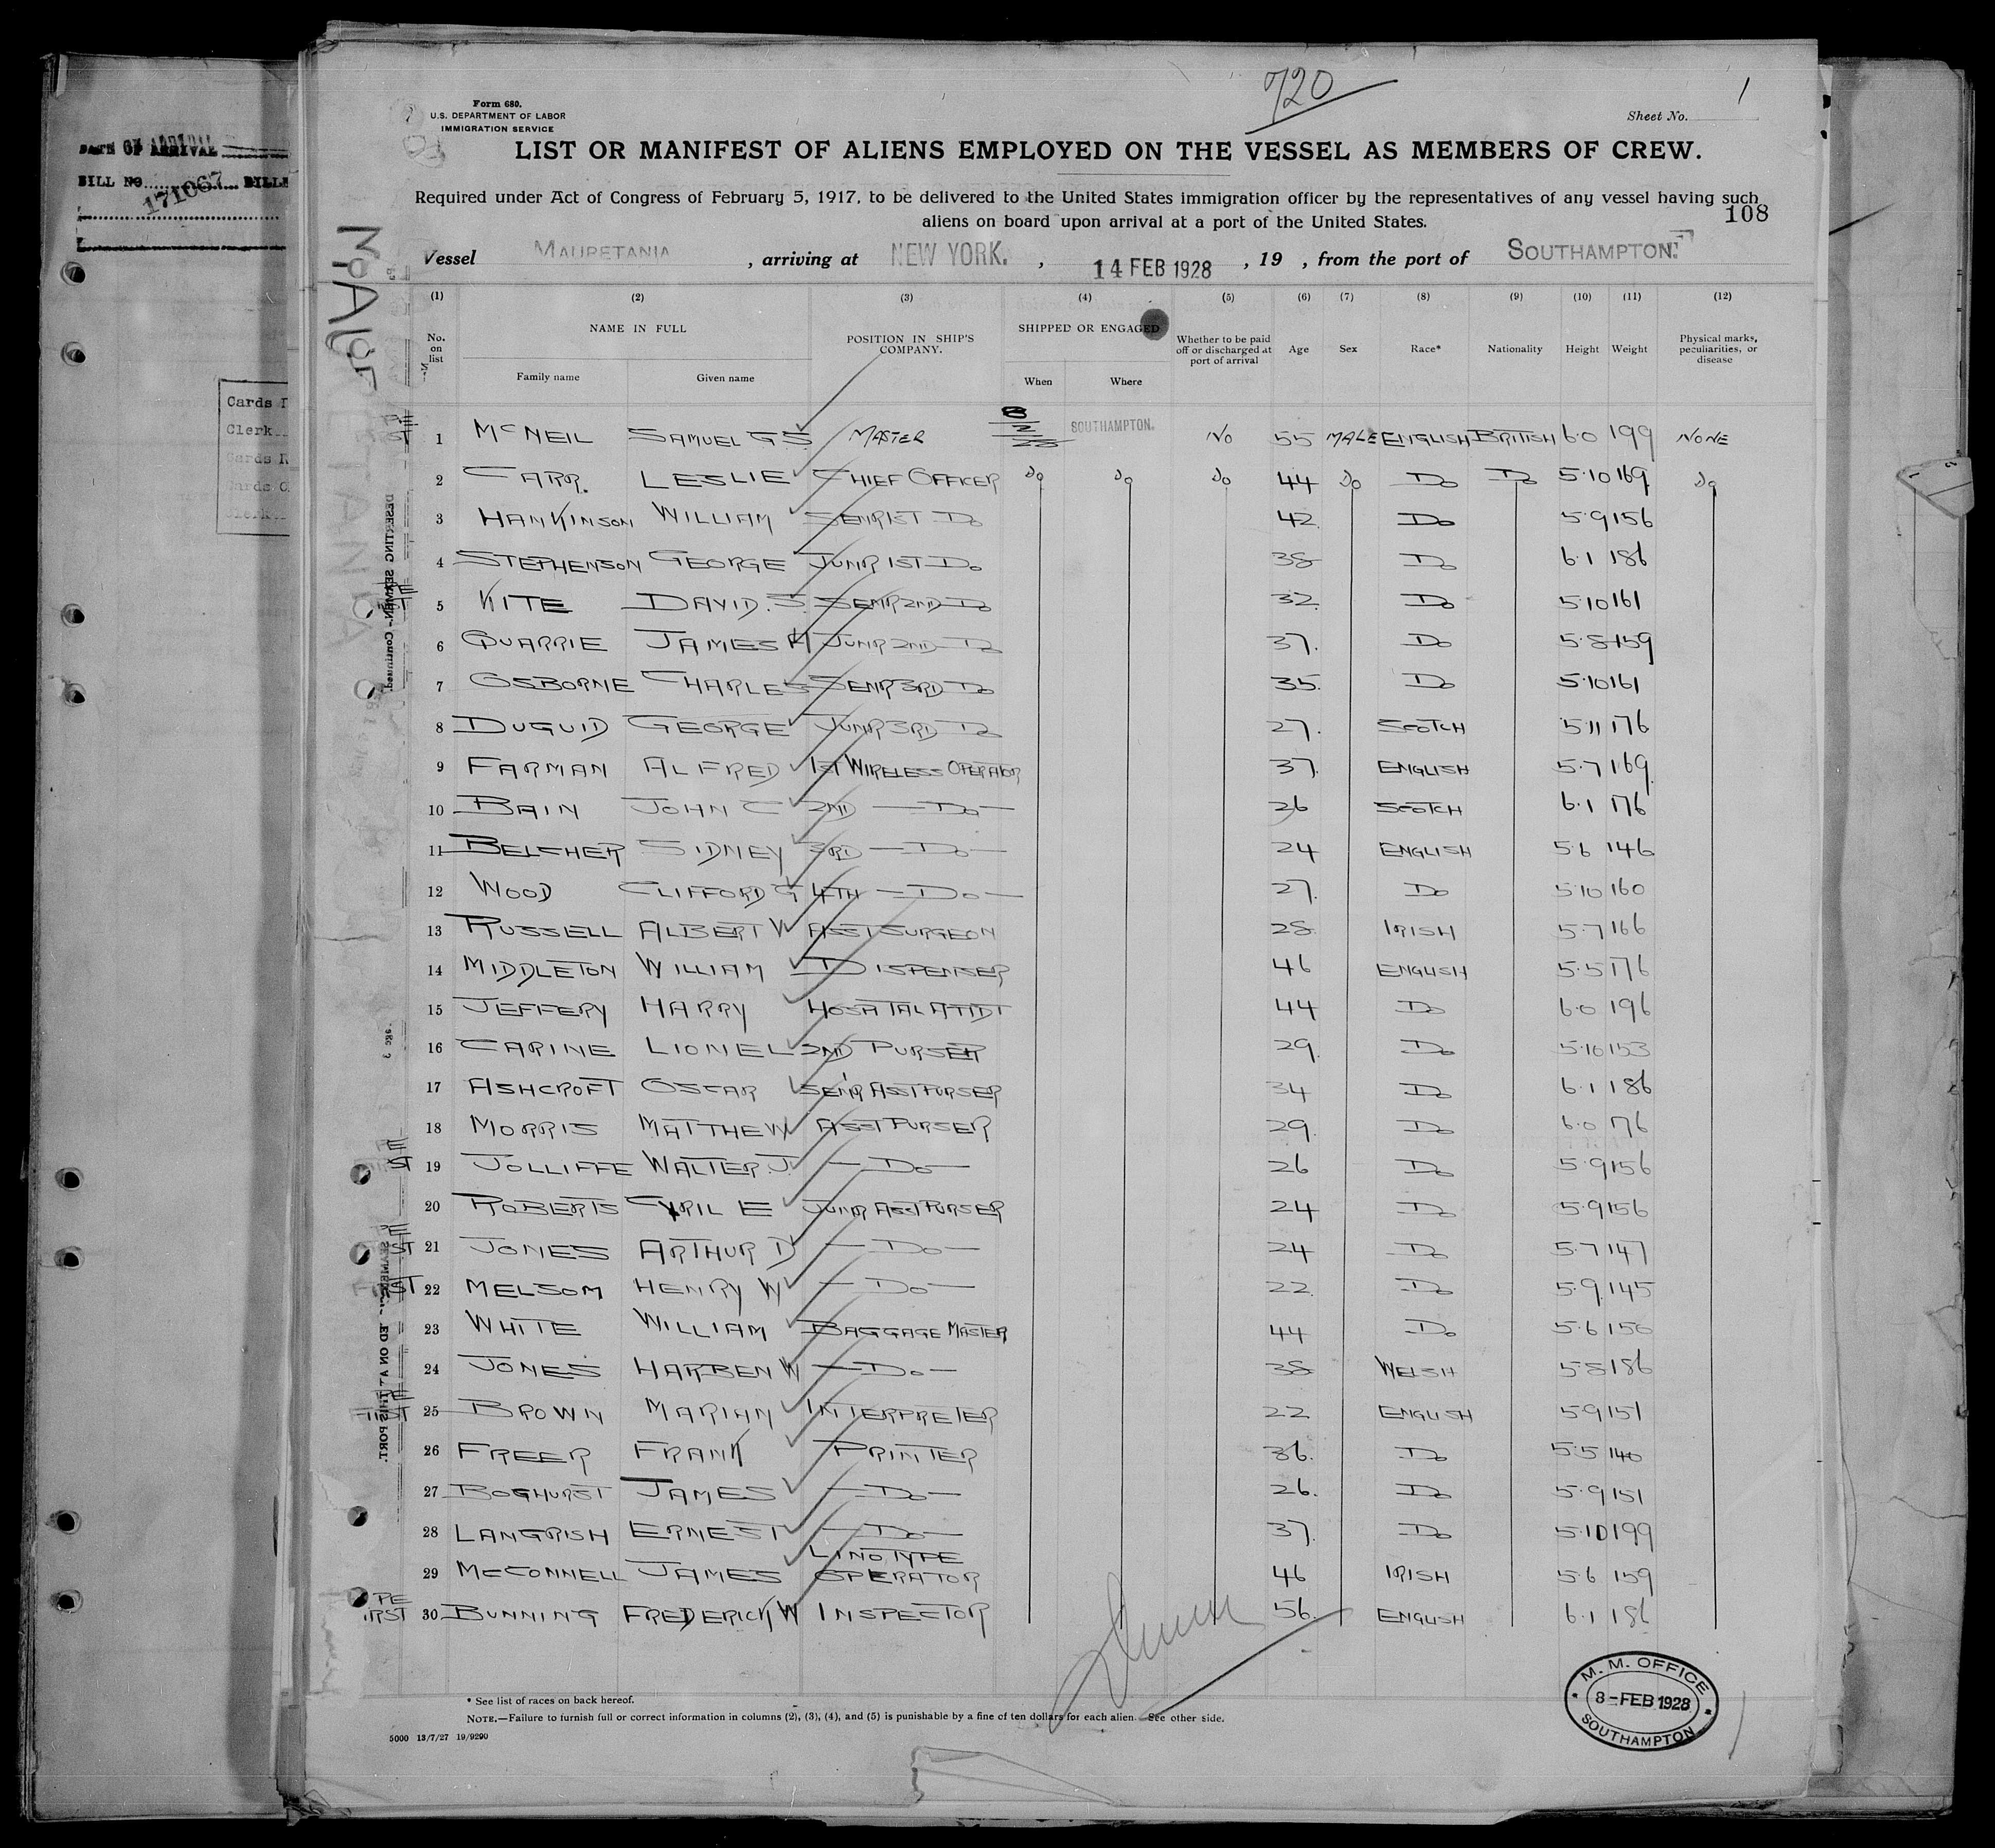 720
1
Form 680.
U.S. DEPARTMENT OF LABOR
IMMIGRATION SERVICE
Sheet No.
DATE OF ARRIVAL
BILL NO. 171067
LIST OR MANIFEST OF ALIENS EMPLOYED ON THE VESSEL AS MEMBERS OF CREW.
Required under Act of Congress of February 5, 1917, to be delivered to the United States immigration officer by the representatives of any vessel having such
aliens on board upon arrival at a port of the United States.
108
Vessel MAURETANIA, arriving at NEW YORK., 14 FEB 1928, 19 , from the port of SOUTHAMPTON.
(1) (2) (3) (4) (5) (6) (7) (8) (9) (10) (11) (12)
No. on list NAME IN FULL Family name Given name POSITION IN SHIP'S COMPANY. SHIPPED OR ENGAGED When Where Whether to be paid off or discharged at port of arrival Age Sex Race* Nationality Height Weight Physical marks, peculiarities, or disease
Cards
Clerk
1 McNEIL SAMUEL G S MASTER 8/2/28 SOUTHAMPTON. NO 55 MALE ENGLISH BRITISH 6·0 199 NONE
2 CARR. LESLIE CHIEF OFFICER DO DO DO 44 DO DO DO 5·10 169 DO
3 HANKINSON WILLIAM SENR 1ST DO 42 DO 5·9 156
4 STEPHENSON GEORGE JUNR 1ST DO 38 DO 6·1 186
5 KITE DAVID. S. SENR 2ND DO 32 DO 5·10 161
6 QUARRIE JAMES H JUNR 2ND DO 37. DO 5·8 159
7 OSBORNE CHARLES SENR 3RD DO 35. DO 5·10 161
8 DUGUID GEORGE JUNR 3RD DO 27. SCOTCH 5·11 176
9 FARMAN ALFRED 1ST WIRELESS OPERATOR 37. ENGLISH 5·7 169
10 BAIN JOHN C 2ND — DO — 26 SCOTCH 6·1 176
11 BELCHER SIDNEY 3RD — DO — 24 ENGLISH 5·6 146
12 WOOD CLIFFORD G 4TH — DO — 27. DO 5·10 160
13 RUSSELL ALBERT W ASST SURGEON 28 IRISH 5·7 166
14 MIDDLETON WILLIAM DISPENSER 46 ENGLISH 5·5 176
15 JEFFERY HARRY HOSPITAL ATTDT 44 DO 6·0 196
16 CARINE LIONEL 2ND PURSER 29. DO 5·10 153
17 ASHCROFT OSCAR SENR ASST PURSER 34 DO 6·1 186
18 MORRIS MATTHEW ASST PURSER 29. DO 6·0 176
19 JOLLIFFE WALTER. J. — DO — 26 DO 5·9 156
20 ROBERTS CYRIL E JUNR ASST PURSER 24 DO 5·9 156
21 JONES ARTHUR D — DO — 24 DO 5·7 147
22 MELSOM HENRY W — DO — 22 DO 5·9 145
23 WHITE WILLIAM BAGGAGE MASTER 44 DO 5·6 150
24 JONES HARBEN W — DO — 38 WELSH 5·8 186
25 BROWN MARIAN INTERPRETER 22 ENGLISH 5·9 151
26 FREER FRANK PRINTER 36. DO 5·5 140
27 BOGHURST JAMES — DO — 26. DO 5·9 151
28 LANGRISH ERNEST — DO — 37. DO 5·10 199
29 McCONNELL JAMES LINOTYPE OPERATOR 46 IRISH 5·6 159
30 BUNNING FREDERICK W INSPECTOR 56. ENGLISH 6·1 186
* See list of races on back hereof.
NOTE.—Failure to furnish full or correct information in columns (2), (3), (4), and (5) is punishable by a fine of ten dollars for each alien. See other side.
5000 13/7/27 19/9290
M. M. OFFICE
8–FEB 1928
SOUTHAMPTON